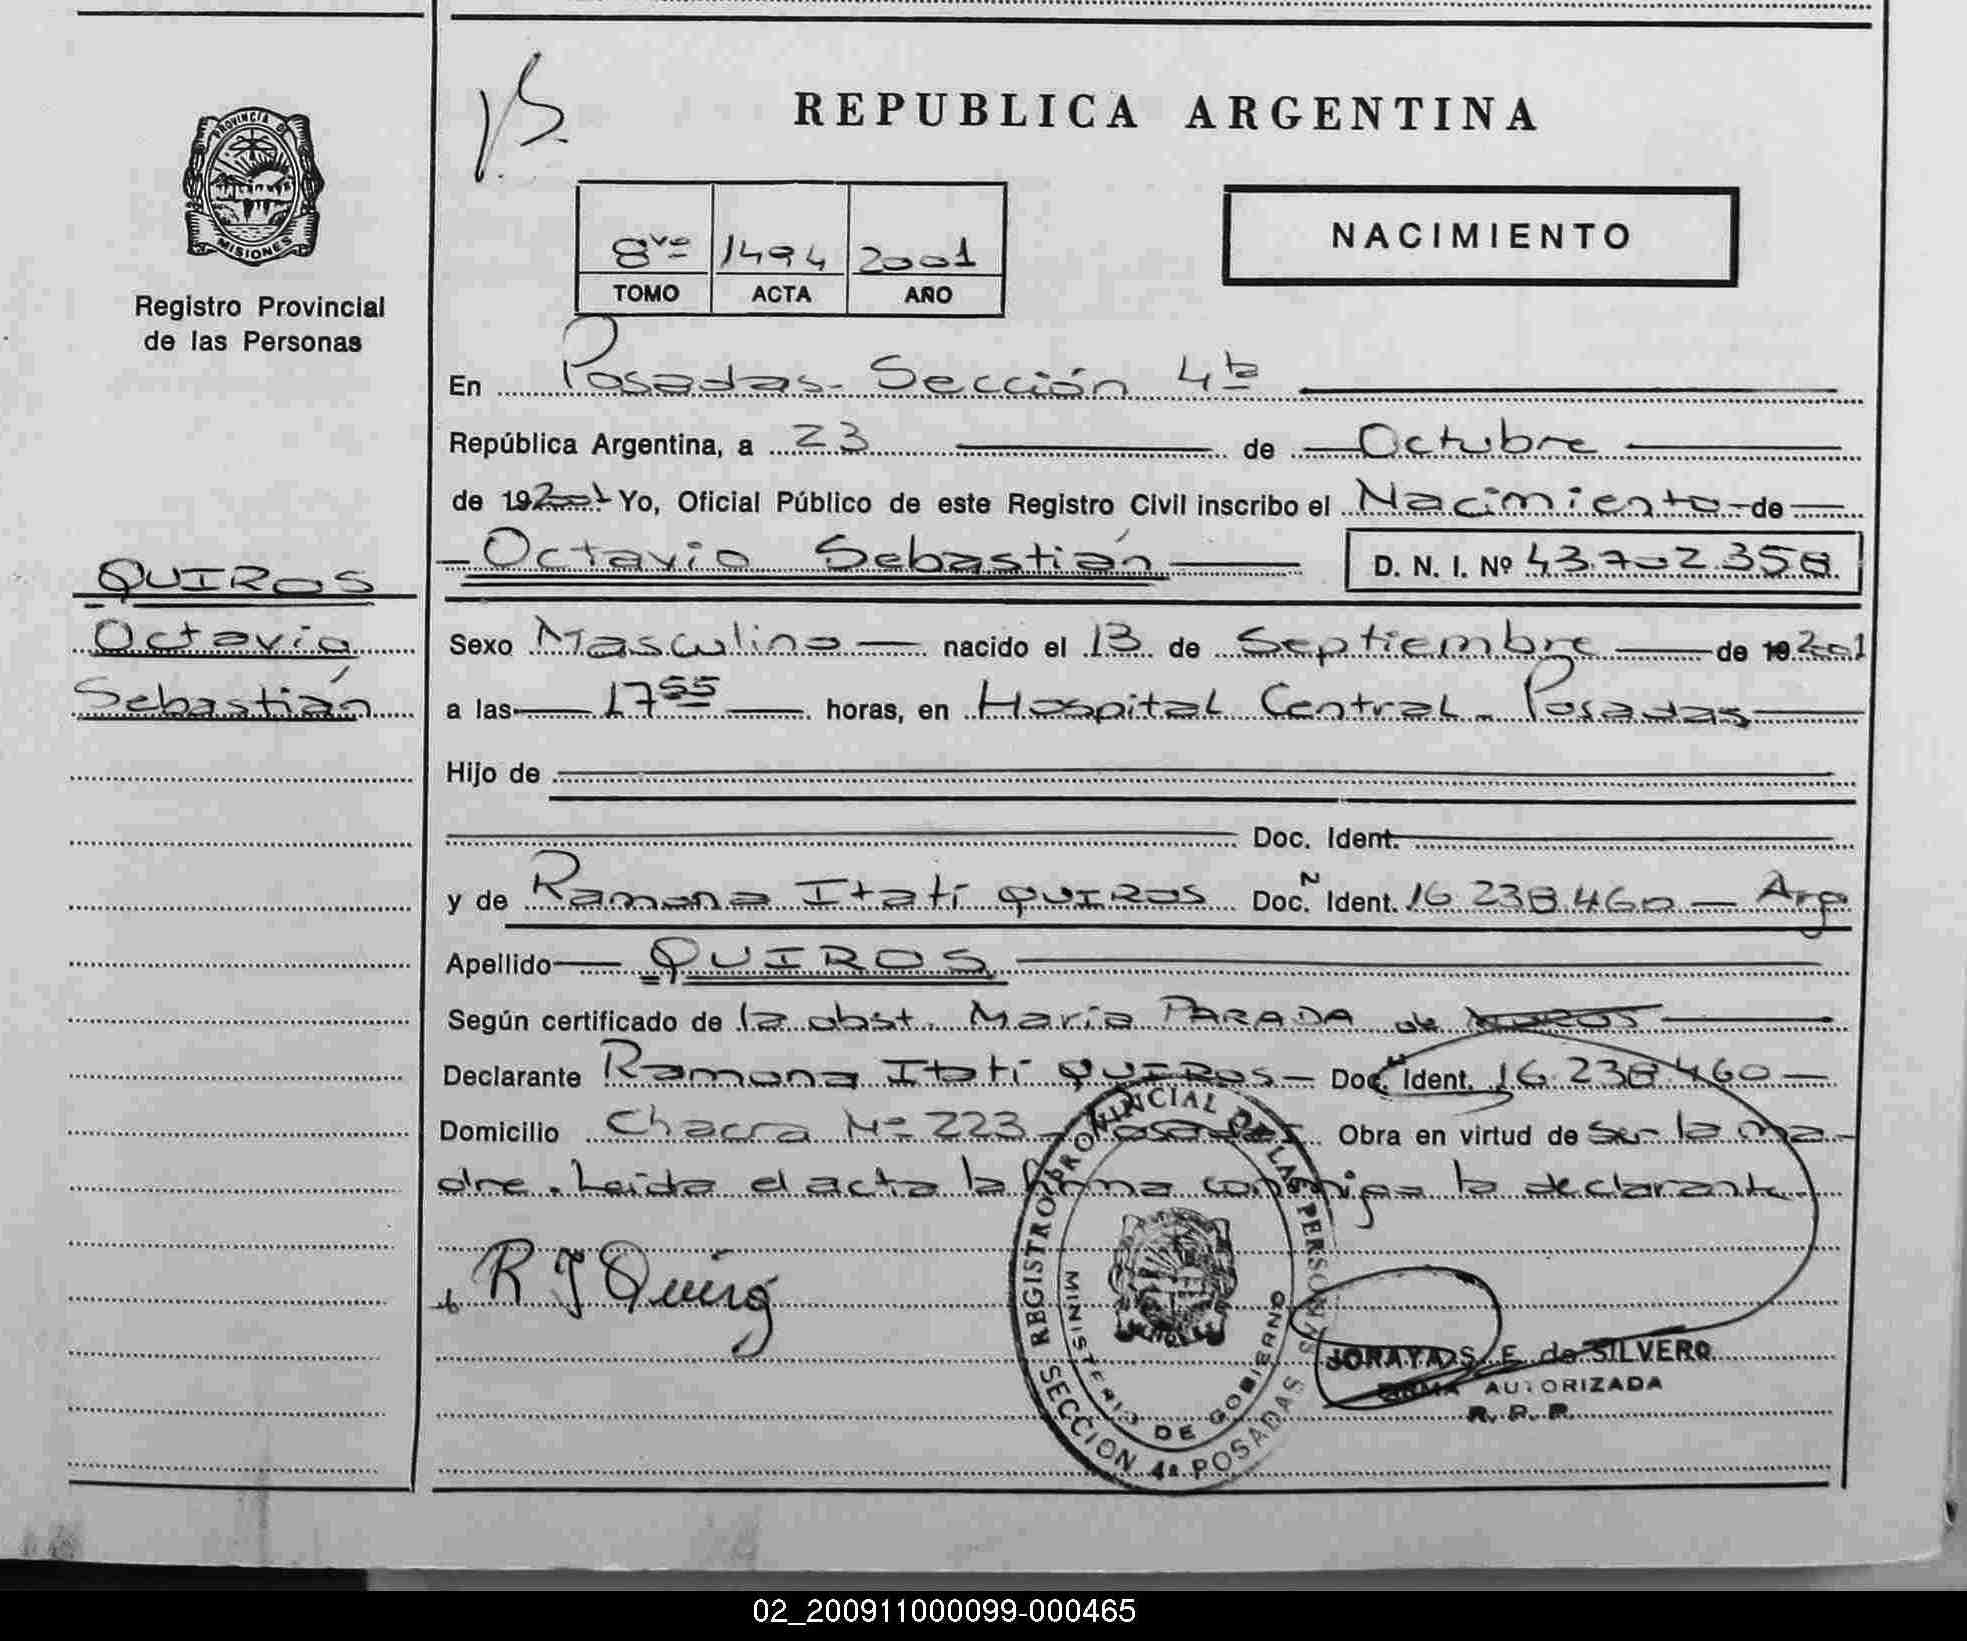 PROVINCIA DE
MISIONES
Registro Provincial
de las Personas
QUIROS
Octavio
Sebastián
REPUBLICA ARGENTINA
NACIMIENTO
8vo 1494 2001
TOMO ACTA AÑO
En Posadas - Sección 4ta
República Argentina, a 23 de Octubre
de 192001 Yo, Oficial Público de este Registro Civil inscribo el Nacimiento de
Octavio Sebastián D. N. I. Nº 43.702.358
Sexo Masculino nacido el 13 de Septiembre de 192001
a las 17 55 horas, en Hospital Central - Posadas
Hijo de
Doc. Ident.
y de Ramona Itatí QUIROS Doc. N Ident. 16.238.460 - Arg
Apellido QUIROS
Según certificado de la obst. María PARADA de
Declarante Ramona Itatí QUIROS - Doc. Ident. 16.238.460 -
Domicilio Chacra Nº 223 - Posadas Obra en virtud de ser la ma-
dre. Leida el acta la firma conmigo la declarante
R I Quiros
REGISTRO PROVINCIAL DE LAS PERSONAS
MINISTERIO DE GOBIERNO
SECCION 4a POSADAS
S. E. de SILVERO
FIRMA AUTORIZADA
R. P. P.
02_200911000099-000465